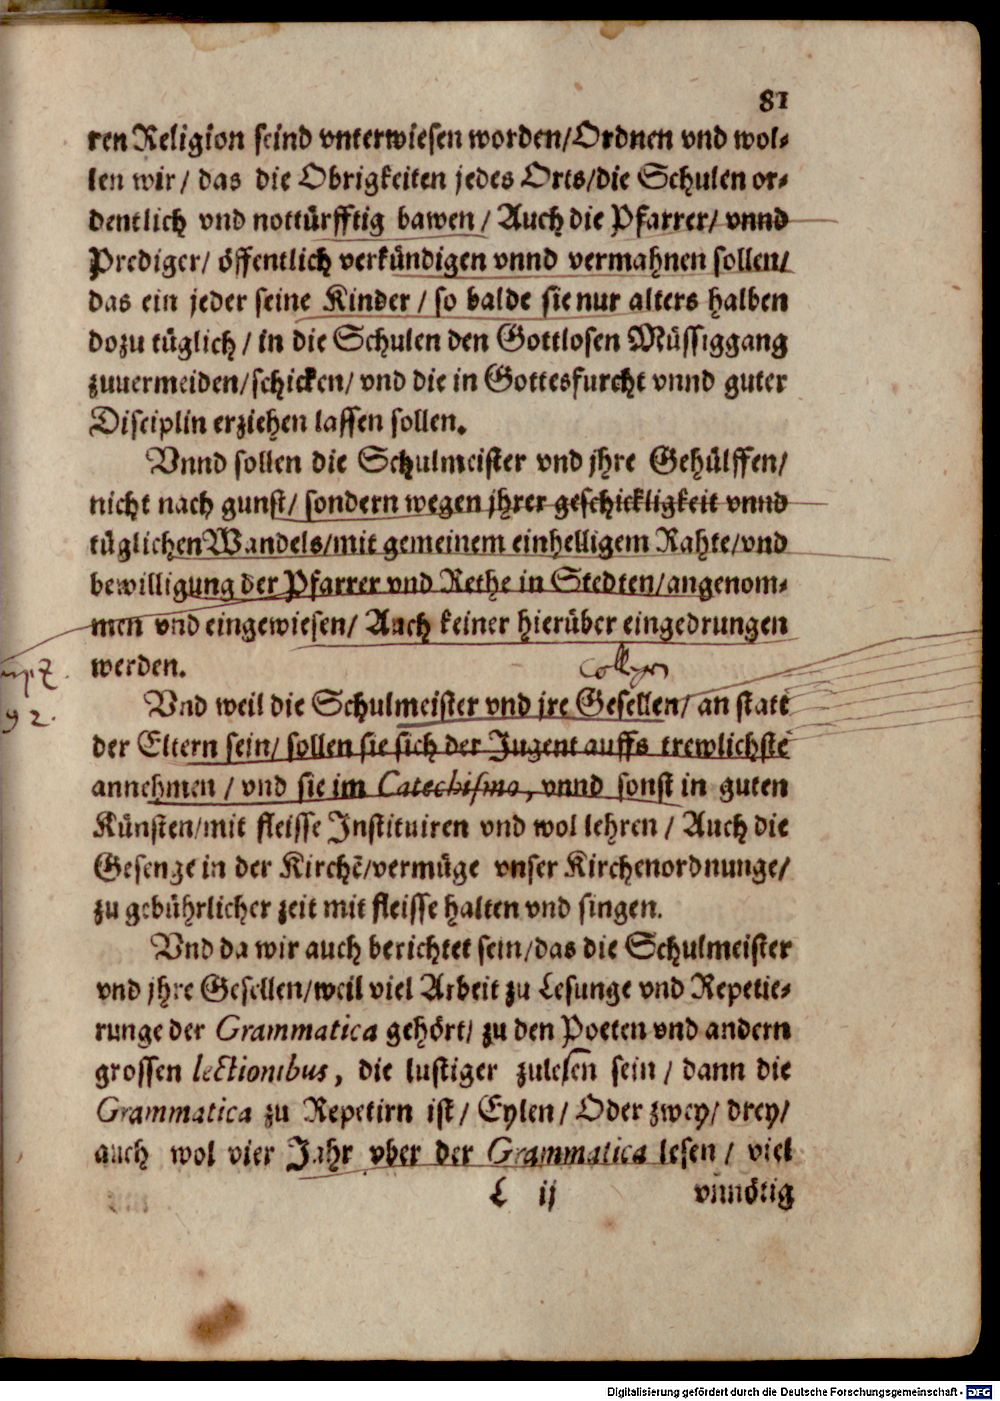 81
ren Religion seind vnterwiesen worden/Ordnen vnd wol-
len wir/ das die Obrigkeiten jedes Orts/die Schulen or-
dentlich vnd nottürfftig bawen/ Auch die Pfarrer/ vnnd
Prediger/ öffentlich verkündigen vnnd vermahnen sollen/
das ein jeder seine Kinder/ so balde sie nur alters halben
dozu tüglich/ in die Schulen den Gottlosen Müssiggang
zuuermeiden/schicken/ vnd die in Gottesfurcht vnnd guter
Disciplin erziehen lassen sollen.
Vnnd sollen die Schulmeister vnd jhre Gehülffen/
nicht nach gunst/ sondern wegen jhrer geschickligkeit vnnd
tüglichen Wandels/mit gemeinem einhelligem Rahte/vnd
bewilligung der Pfarrer vnd Rethe in Stedten/angenom-
men vnd eingewiesen/ Auch keiner hierüber eingedrungen
werden.
92.
Vnd weil die Schulmeister vnd jre Gesellen/ an statt
der Eltern sein/ sollen sie sich der Jugent auffs trewlichste
annehmen/ vnd sie im Catechismo, vnnd sonst in guten
Künsten/mit fleisse Instituiren vnd wol lehren/ Auch die
Gesenge in der Kirchē/vermüge vnser Kirchenordnunge/
zu gebührlicher zeit mit fleisse halten vnd singen.
Vnd da wir auch berichtet sein/das die Schulmeister
vnd jhre Gesellen/weil viel Arbeit zu Lesunge vnd Repetie-
runge der Grammatica gehört/ zu den Poeten vnd andern
grossen lectionibus, die lustiger zulesen sein/ dann die
Grammatica zu Repetirn ist/ Eylen/ Oder zwey/ drey/
auch wol vier Jahr vber der Grammatica lesen/ viel
L ij vnnötig
Digitalisierung gefördert durch die Deutsche Forschungsgemeinschaft - DFG